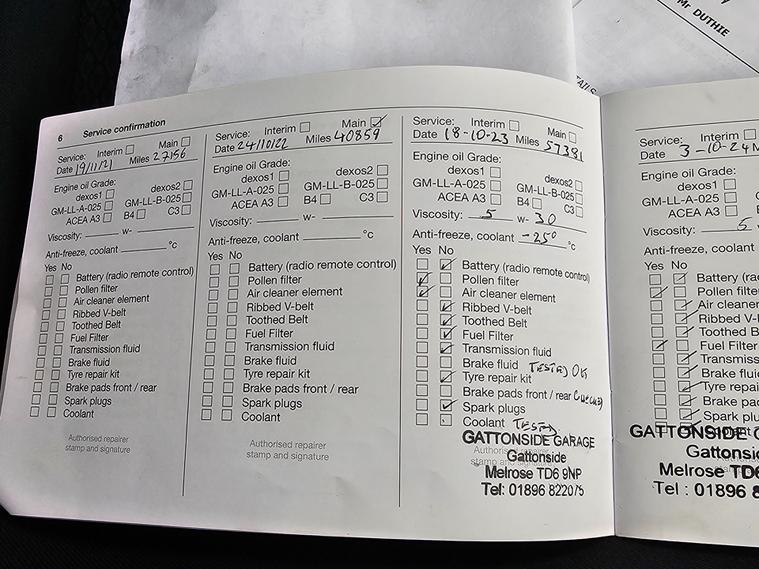 Mr DUTHIE
6 Service confirmation
Service: Interim Main
Date 19/11/21 Miles 27156
Engine oil Grade:
dexos1 dexos2
GM-LL-A-025 GM-LL-B-025
ACEA A3 B4 C3
Viscosity: w-
Anti-freeze, coolant °c
Yes No
Battery (radio remote control)
Pollen filter
Air cleaner element
Ribbed V-belt
Toothed Belt
Fuel Filter
Transmission fluid
Brake fluid
Tyre repair kit
Brake pads front / rear
Spark plugs
Coolant
Authorised repairer
stamp and signature
Service: Interim Main
Date 24/10/22 Miles 40859
Engine oil Grade:
dexos1 dexos2
GM-LL-A-025 GM-LL-B-025
ACEA A3 B4 C3
Viscosity: w-
Anti-freeze, coolant °c
Yes No
Battery (radio remote control)
Pollen filter
Air cleaner element
Ribbed V-belt
Toothed Belt
Fuel Filter
Transmission fluid
Brake fluid
Tyre repair kit
Brake pads front / rear
Spark plugs
Coolant
Authorised repairer
stamp and signature
Service: Interim Main
Date 18-10-23 Miles 57381
Engine oil Grade:
dexos1 dexos2
GM-LL-A-025 GM-LL-B-025
ACEA A3 B4 C3
Viscosity: 5 w- 30
Anti-freeze, coolant -25° °c
Yes No
Battery (radio remote control)
Pollen filter
Air cleaner element
Ribbed V-belt
Toothed Belt
Fuel Filter
Transmission fluid
Brake fluid TESTED OK
Tyre repair kit
Brake pads front / rear CHECKED
Spark plugs
Coolant TESTED
GATTONSIDE GARAGE
Gattonside
Melrose TD6 9NP
Tel: 01896 822075
Service: Interim
Date 3-10-24 M
Engine oil Grade:
dexos1
GM-LL-A-025
ACEA A3
Viscosity: 5
Anti-freeze, coolant
Yes No
Battery (ra
Pollen filter
Air cleaner
Ribbed V-b
Toothed B
Fuel Filter
Transmiss
Brake fluid
Tyre repa
Brake pa
Spark plu
GATTONSIDE G
Gattonsid
Melrose TD6
Tel : 01896 8